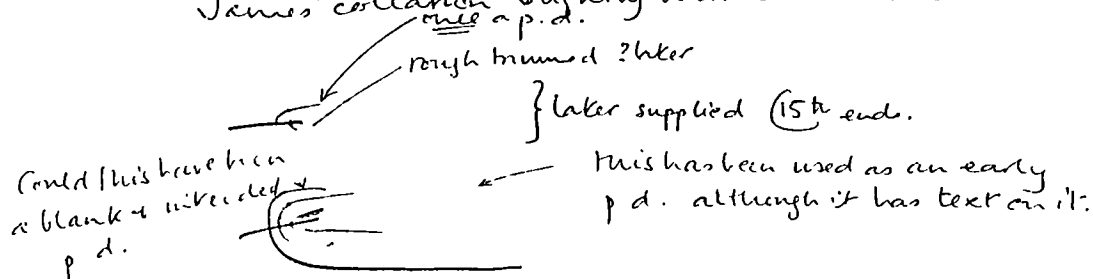 James' collation
once a p.d.
rough trimmed ?later
} later supplied (15th ends.
Could this have been
a blank & intended
p d.
this has been used as an early
p d. although it has text on it.